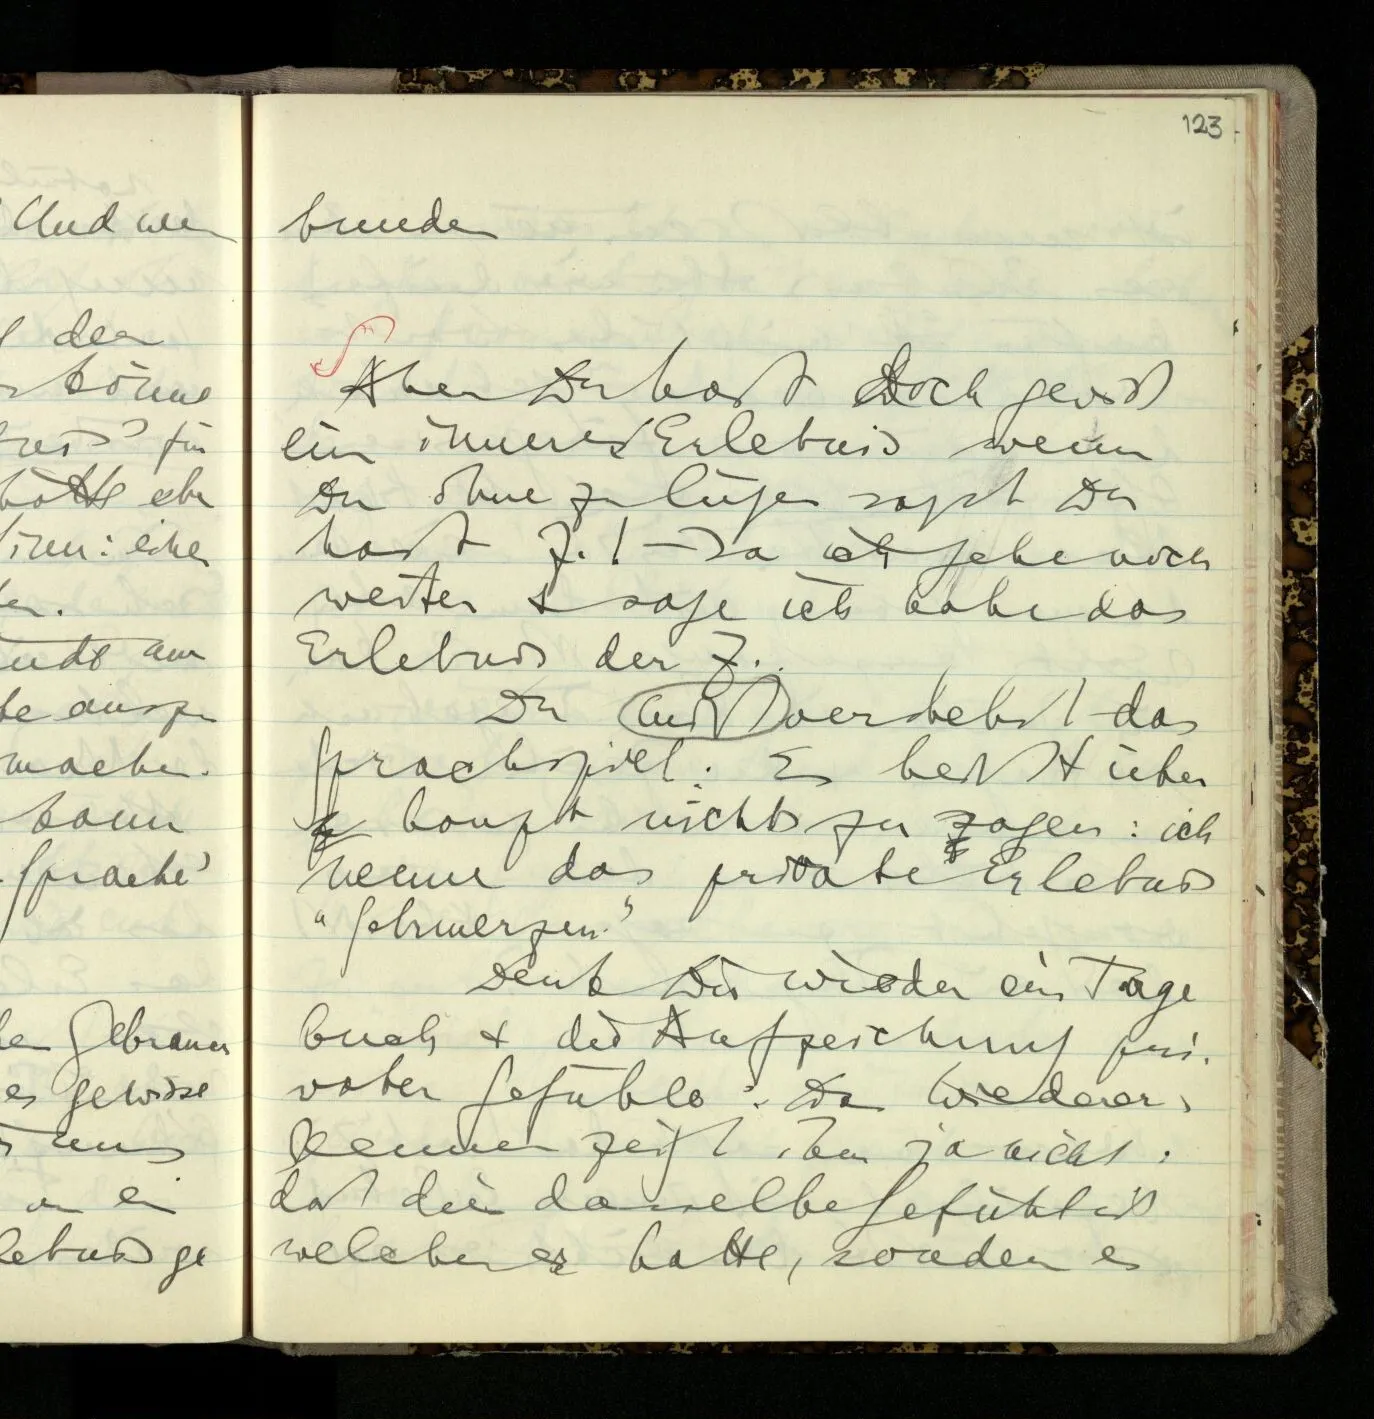 123
Und wen
der
könne
für
hätte eher
: eine
am
machen.
kann
Sprache'
Gebrauch
es gewisse
uns
an ein
ge
bunden
Aber Du hast doch gewiß
ein inneres Erlebnis wenn
Du ohne zu lügen sagst Du
hast Z.! – Ja ich gehe noch
weiter & sage ich habe das
Erlebnis der Z..
Du mißverstehst das
Sprachspiel: Es heißt über
haupt nichts zu sagen: ich
nenne das private Erlebnis
"Schmerzen."
Denk Dir wieder ein Tage
buch & die Aufzeichnung pri-
vater Gefühle: Das Wiederer-
kennen zeigt ihm ja nicht,
daß dies dasselbe Gefühl ist
welches er hatte, sondern es